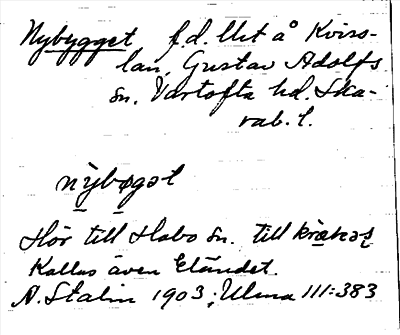 Nybygget f.d. lht å Kvirs-
lan, Gustav Adolfs
sn. Vartofta hd. Ska-
rab. l.
nỳbøgəl
Hör till Habo sn. till
Kallas även Eländet.
A. Stalin 1903; Ulma 111:383